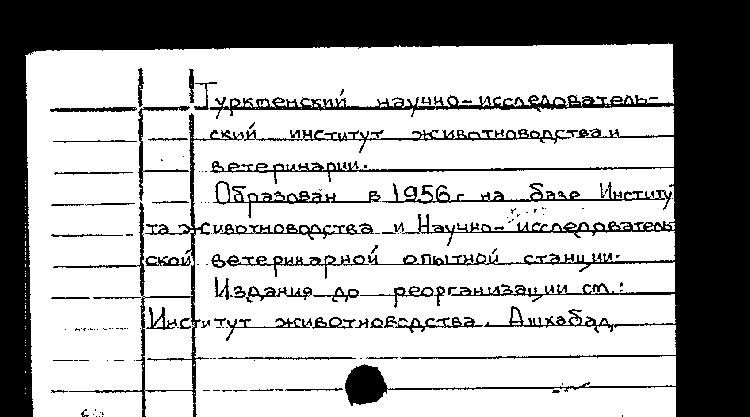 Туркменский научно-исследователь-
ский институт животноводства и
ветеринарии.
Образован в 1956 г на базе Институ
та животноводства и Научно-исследователь
ской ветеринарной опытной станции.
Издания до реорганизации см.:
Институт животноводства. Ашхабад.